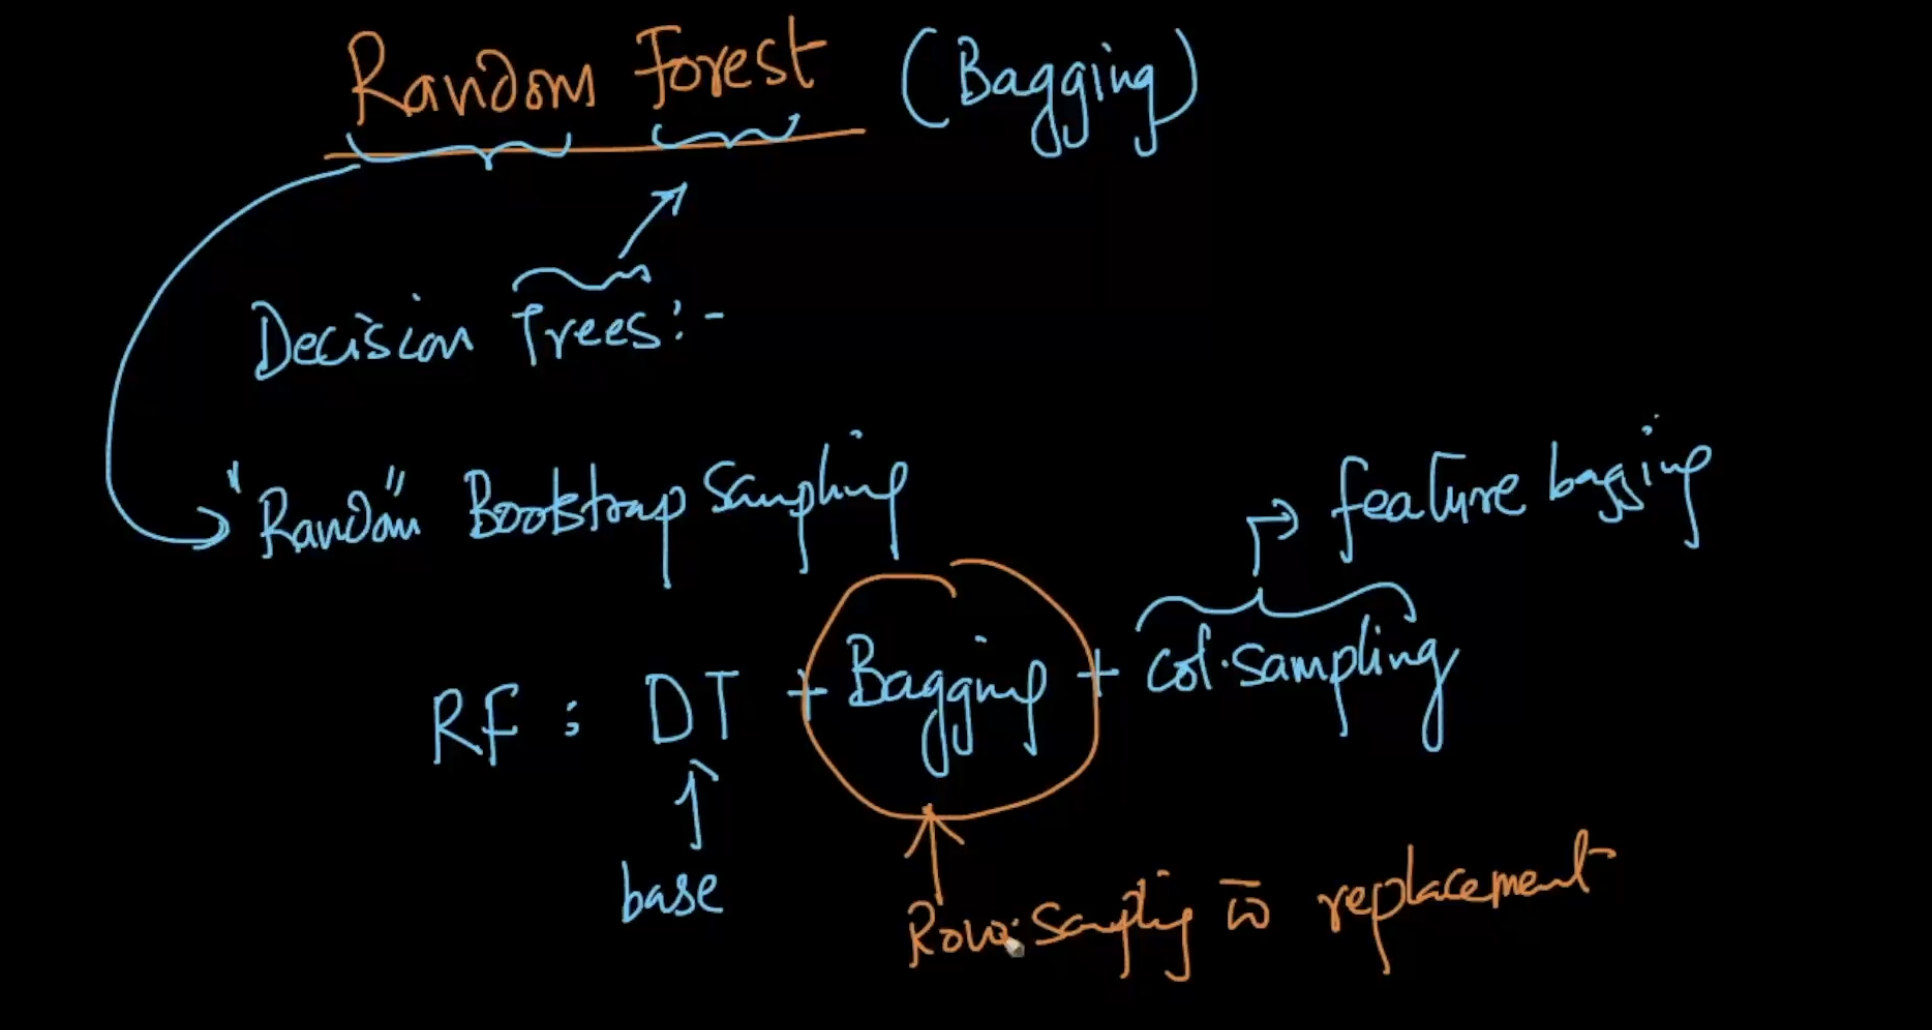 Random Forest (Bagging)
Decision Trees:-
"Random" Bootstrap Sampling
feature bagging
RF : DT + Bagging + col. sampling
base
Row. Sampling w̄ replacement